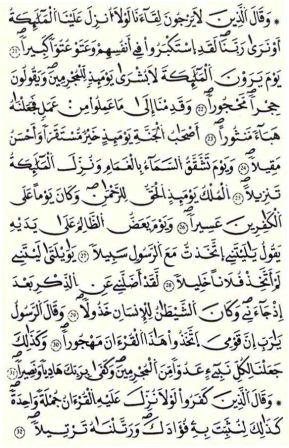 ۞ وَقَالَ اَ۬لذِينَ لَا يَرْجُونَ لِقَآءَنَا لَوْلَآ أُنزِلَ عَلَيْنَا اَ۬لْمَلَٰٓئِكَةُ
أَوْ نَر۪يٰ رَبَّنَا لَقَدِ اِ۪سْتَكْبَرُواْ فِےٓ أَنفُسِهِمْ وَعَتَوْ عُتُوّاٗ كَبِيراٗ ٢١
يَوْمَ يَرَوْنَ اَ۬لْمَلَٰٓئِكَةَ لَا بُشْر۪يٰ يَوْمَئِذٖ لِّلْمُجْرِمِينَ وَيَقُولُونَ
حِجْراٗ مَّحْجُوراٗ ٢٢ وَقَدِمْنَآ إِلَيٰ مَا عَمِلُواْ مِنْ عَمَلٖ فَجَعَلْنَٰهُ
هَبَآءٗ مَّنثُوراً ٢٣ أَصْحَٰبُ اُ۬لْجَنَّةِ يَوْمَئِذٍ خَيْرٞ مُّسْتَقَرّاٗ وَأَحْسَنُ
مَقِيلاٗ ٢٤ وَيَوْمَ تَشَّقَّقُ اُ۬لسَّمَآءُ بِالْغَمَٰمِ وَنُزِّلَ اَ۬لْمَلَٰٓئِكَةُ
تَنزِيلاً ٢٥ اِ۬لْمُلْكُ يَوْمَئِذٍ اِ۬لْحَقُّ لِلرَّحْمَٰنِ وَكَانَ يَوْماً عَلَي
اَ۬لْكٰ۪فِرِينَ عَسِيراٗ ٢٦ وَيَوْمَ يَعَضُّ اُ۬لظَّالِمُ عَلَيٰ يَدَيْهِ
يَقُولُ يَٰلَيْتَنِے اِ۪تَّخَذتُّ مَعَ اَ۬لرَّسُولِ سَبِيلاٗ ٢٧ يَٰوَيْلَت۪يٰ لَيْتَنِے
لَمَ اَتَّخِذْ فُلَٰناً خَلِيلاٗ ٢٨ لَّقَدَ اَضَلَّنِے عَنِ اِ۬لذِّكْرِ بَعْدَ
إِذْ جَآءَنِے وَكَانَ اَ۬لشَّيْطَٰنُ لِلِانسَٰنِ خَذُولاٗ ٢٩ وَقَالَ اَ۬لرَّسُولُ
يَٰرَبِّ إِنَّ قَوْمِيَ اَ۪تَّخَذُواْ هَٰذَا اَ۬لْقُرْءَانَ مَهْجُوراٗ ٣٠ وَكَذَٰلِكَ
جَعَلْنَا لِكُلِّ نَبِےٓءٍ عَدُوّاٗ مِّنَ اَ۬لْمُجْرِمِينَ وَكَف۪يٰ بِرَبِّكَ هَادِياٗ وَنَصِيراٗ ٣١
۞ وَقَالَ اَ۬لذِينَ كَفَرُواْ لَوْلَا نُزِّلَ عَلَيْهِ اِ۬لْقُرْءَانُ جُمْلَةٗ وَٰحِدَةٗ
كَذَٰلِكَ لِنُثَبِّتَ بِهِۦ فُؤَادَكَ وَرَتَّلْنَٰهُ تَرْتِيلاٗ ٣٢